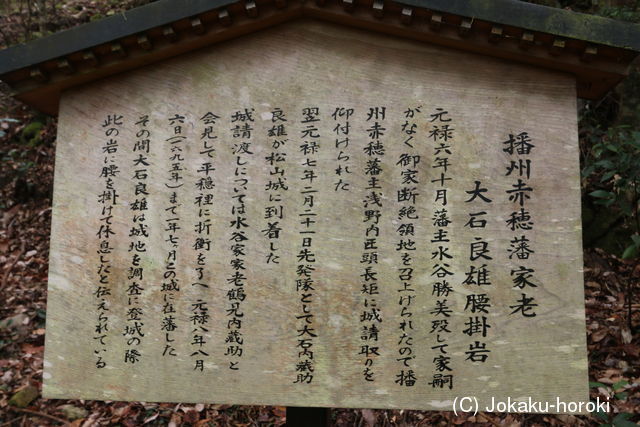 播州赤穂藩家老
大石良雄腰掛岩
元禄六年十月藩主水谷勝美殁して家嗣
がなく御家断絶領地を召上げられたので播
州赤穂藩主浅野内匠頭長矩に城請取りを
仰付けられた
翌元禄七年二月二十一日先発隊として大石内蔵助
良雄が松山城に到着した
城請渡しについては水谷家家老鶴見内蔵助と
会見して平穏裡に折衝を了へ元禄八年八月
六日(一六九五年)まで一年七ヶ月この城に在藩した
その間大石良雄は城地を調査に登城の際
此の岩に腰を掛けて休息したと伝えられている
(C) Jokaku-horoki